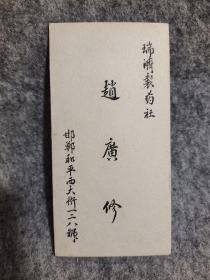 瑞濟製药社
趙廣修
邯鄲和平西大街一二八號